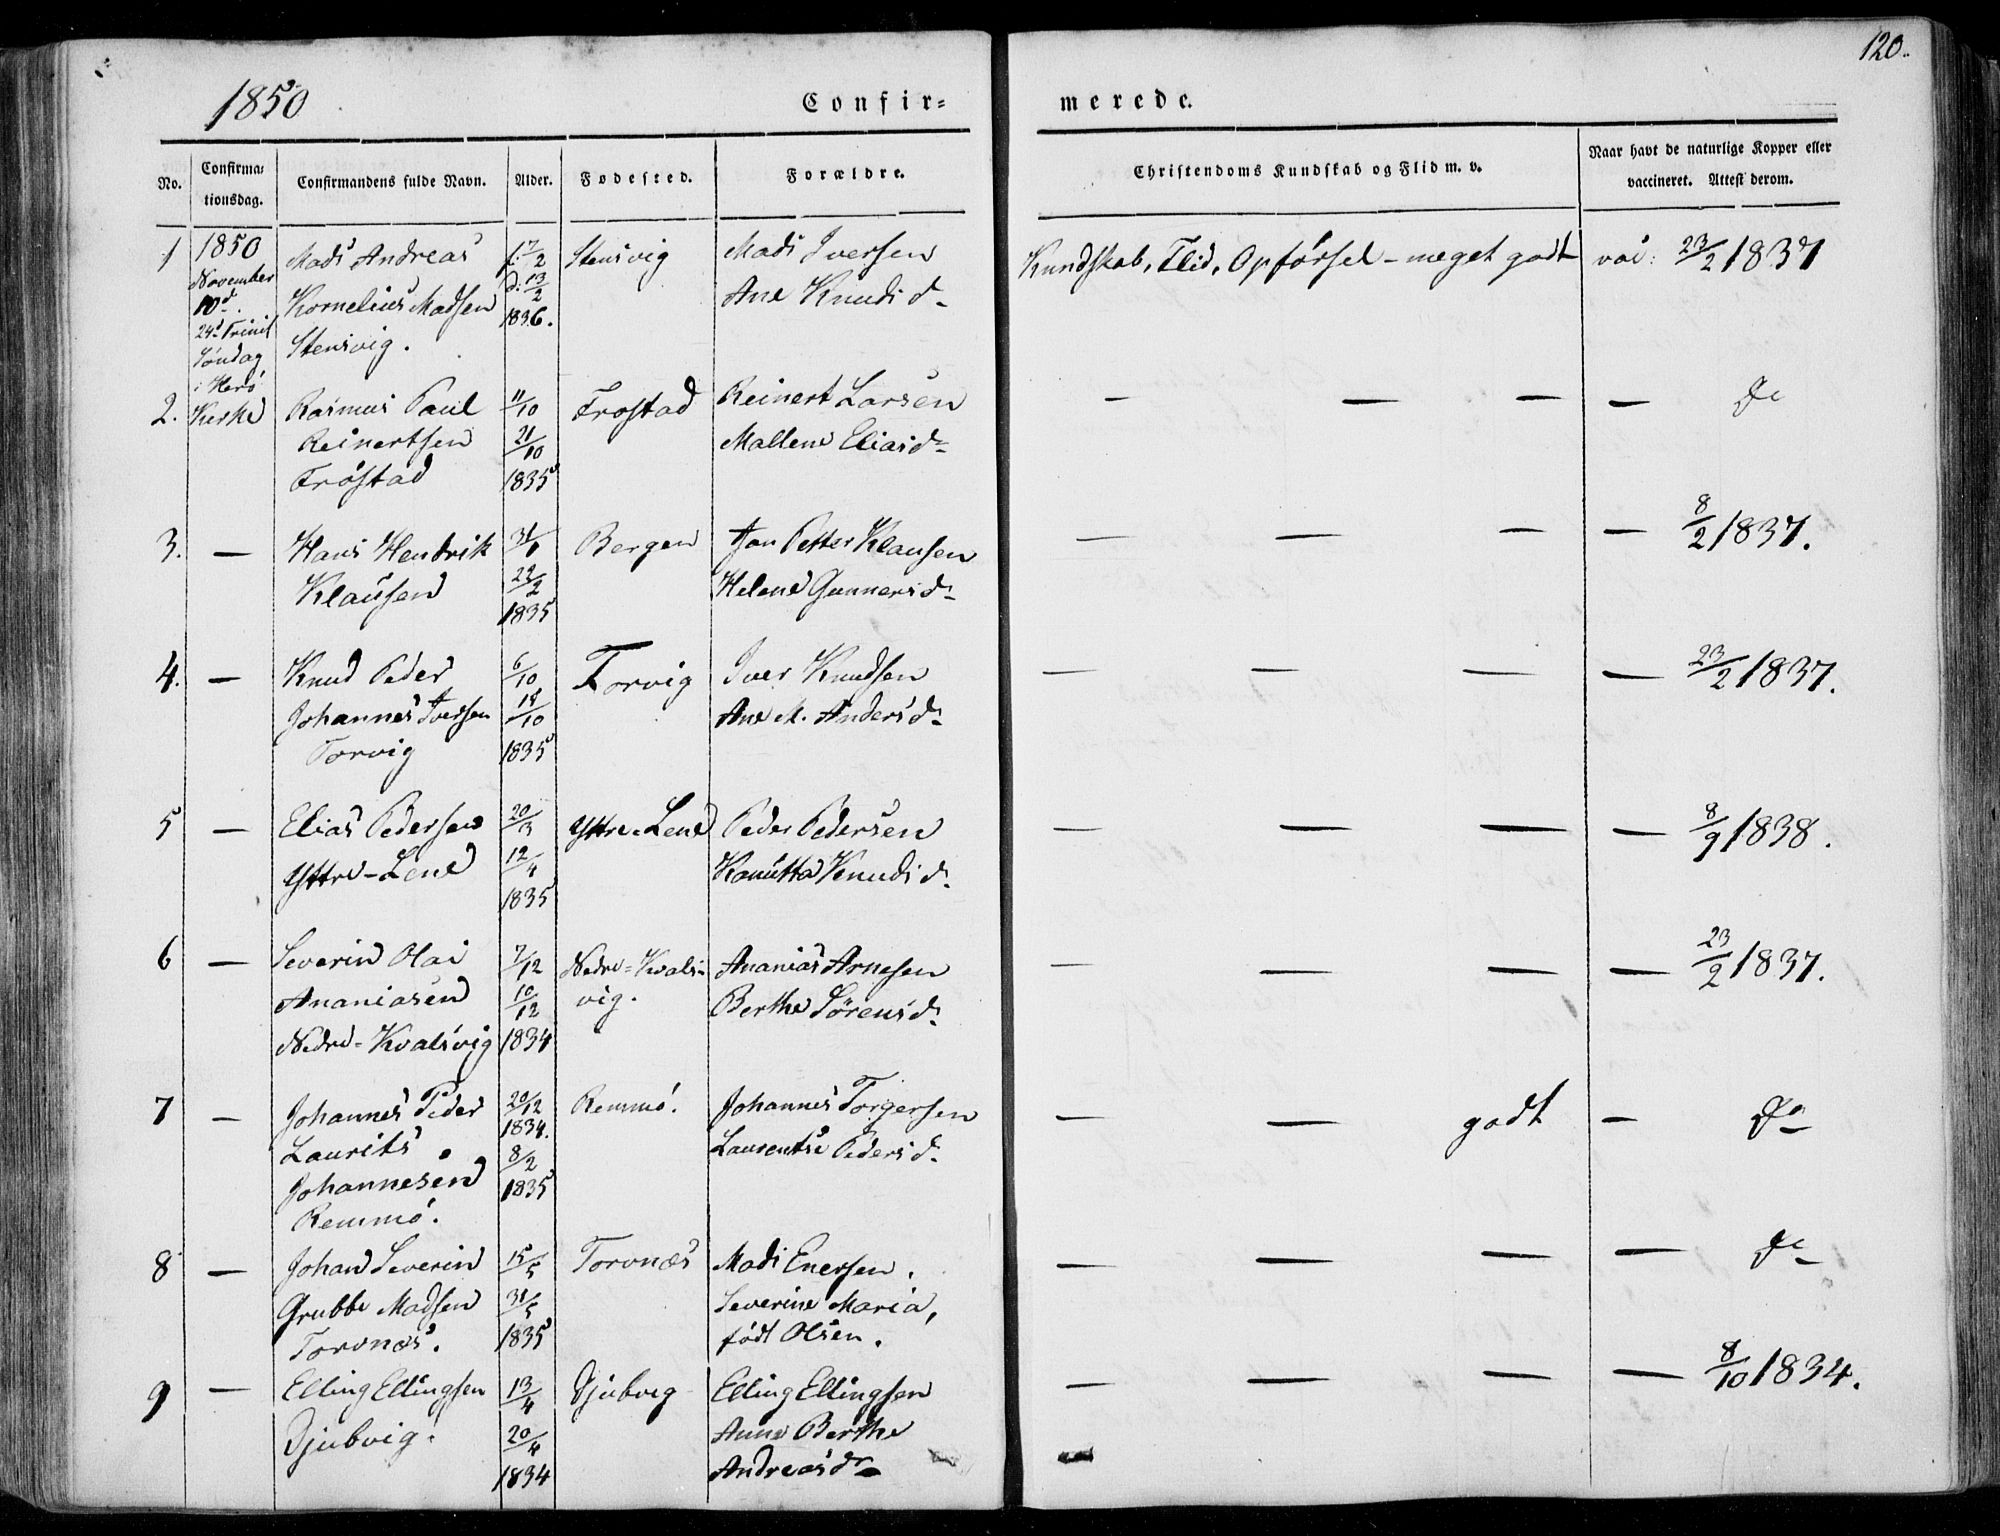 1850
Confir=
merede.
120.
No.
Confirma=
tionsdag.
Confirmandens fulde Navn.
Alder.
Fødested.
Forældre.
Christendoms Kundskab og Flid m. v.
Naar havt de naturlige Kopper eller
vaccineret. Attest derom.
1
1850
November
10d.
24d Trinit
Søndag
i Herø
Kirke
Mads Andreas
Kornelius Madsen
Stensvig.
f: 7/2
d: 13/2
1836.
Stensvig
Mads Iversen
Ane Knudsd.
Kundskab, Flid, Opførsel – meget godt
vac: 23/2 1837
2.
Rasmus Paul
Reinertsen
Frøstad
11/10
21/10
1835
Frostad
Reinert Larsen
Mallene Eliasd.
— — — — Do
3. —
Hans Hendrik
Klausen
22/2
1835
Bergen
Jan Petter Klausen
Helene Gunnersd.
— — — — 8/2 1837.
4. —
Knud Peder
Johannes Iversen
Torvig
6/10
18/10
1835
Torvig
Iver Knudsen
Ane M. Andersd.
— — — — 23/2 1837.
5 —
Elias Pedersen
Yttre-Lene
20/3
12/4
1835
Yttre-Lene
Peder Pedersen
Kanutta Knudsd.
— — — — 8/9 1838.
6 —
Severin Olai
Ananiasen
Nedre-Kvalsvig
7/12
10/12
1834
Nedre-Kvals-
vig.
Ananias Arnesen
Berthe Sørensd.
— — — — 23/2 1837.
7 —
Johannes Peder
Laurits
Johannesen
Remmø.
20/12
1834.
8/2
1835
Remmø.
Johannes Torgersen
Laurentse Pedersd.
— — godt — Do
8 —
Johan Severin
Grubbe Madsen
Torvnæs.
15/5
31/5
1835
Torvnæs
Mads Enersen.
Severine Maria,
født Olsen.
— — — — Do
9 —
Elling Ellingsen
Djubvig.
13/4
20/4
1834
Djubvig
Elling Ellingsen
Anne Berthe
Andreasdr
— — — — 8/10 1834.